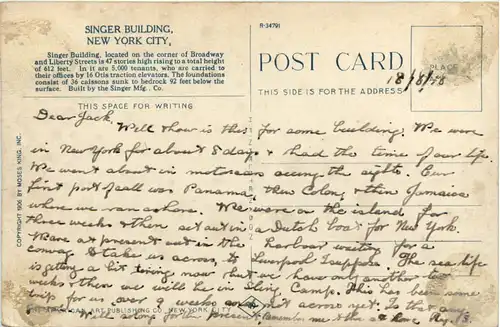 SINGER BUILDING,
NEW YORK CITY,
Singer Building, located on the corner of Broadway
and Liberty Streets is 47 stories high rising to a total height
of 612 feet. In it are 5,000 tenants, who are carried to
their offices by 16 Otis traction elevators. The foundations
consist of 36 caissons sunk to bedrock 92 feet below the
surface. Built by the Singer Mfg. Co.
R-34791
POST CARD
THIS SIDE IS FOR THE ADDRESS
PLACE
18/8/18
THIS SPACE FOR WRITING
Dear Jack,
Well how is this for some building. We were
in New York for about 8 days & had the time of our life.
We went about in motorcars seeing the sights. Our
first port of call was Panama, then Colon, & then Jamaica
where we ran ashore. We were on the island for
three weeks & then set out in a Dutch boat for New York.
We are at present out in the harbour waiting for a
convoy to take us across, to Liverpool I suppose. The sea life
is getting a bit tiring now but we have only another two
weeks & then we will be in Sling Camp. This has been some
trip for us, over 9 weeks & not across yet.
Well so long for the present. Remember me to those at home
COPYRIGHT 1906 BY MOSES KING, INC.
ART PUBLISHING CO., NEW YORK CITY